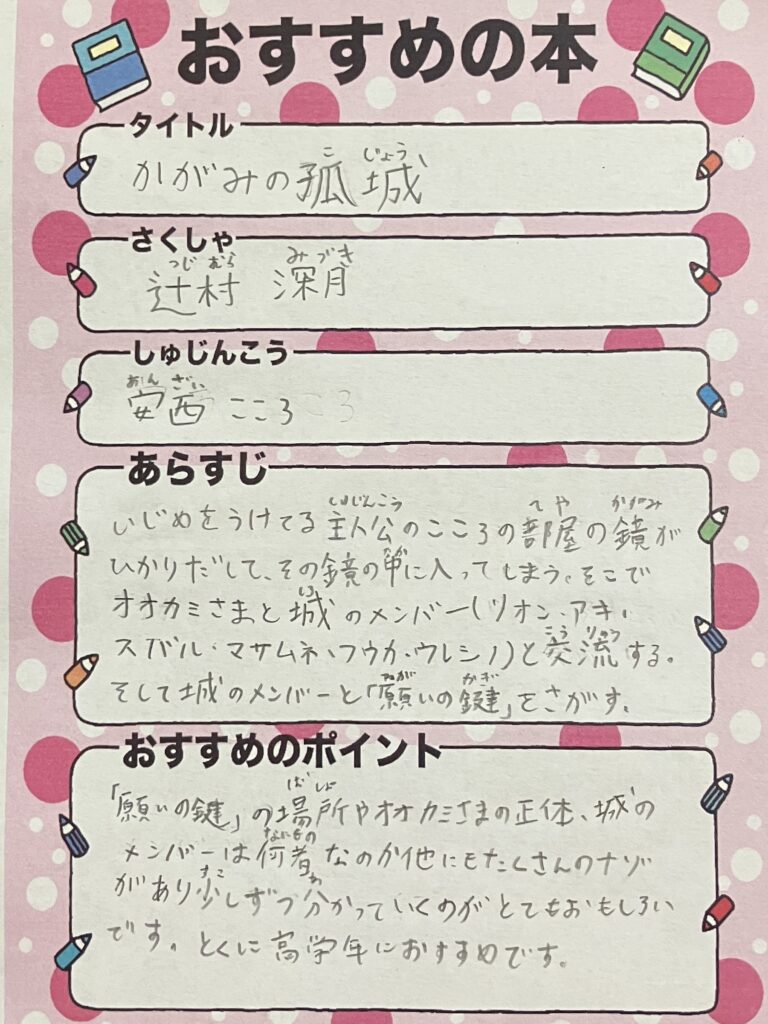 おすすめの本
タイトル
かがみの孤城
さくしゃ
辻村 深月
しゅじんこう
安西 こころ
あらすじ
いじめをうけてる主人公のこころの部屋の鏡が
ひかりだして、その鏡の中に入ってしまう。そこで
オオカミさまと城のメンバー(リオン・アキ・
スバル・マサムネ・フウカ・ウレシノ)と交流する。
そして城のメンバーと「願いの鍵」をさがす。
おすすめのポイント
「願いの鍵」の場所やオオカミさまの正体、城の
メンバーは何者なのか他にもたくさんのナゾ
があり少しずつ分かっていくのがとてもおもしろい
です。とくに高学年におすすめです。